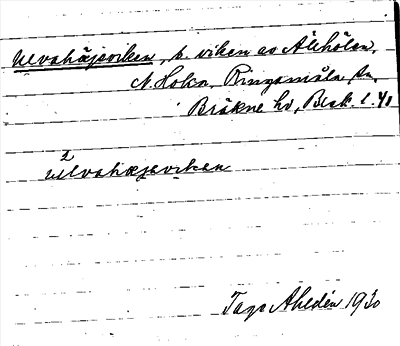 Ulvahæjsviken, s. viken av Åleholan,
N. Hoka, Ringamåla sn,
Bräkne hd, Blek. l. 41
2
Ulvahæjsviken
Tage Ahldén 1930